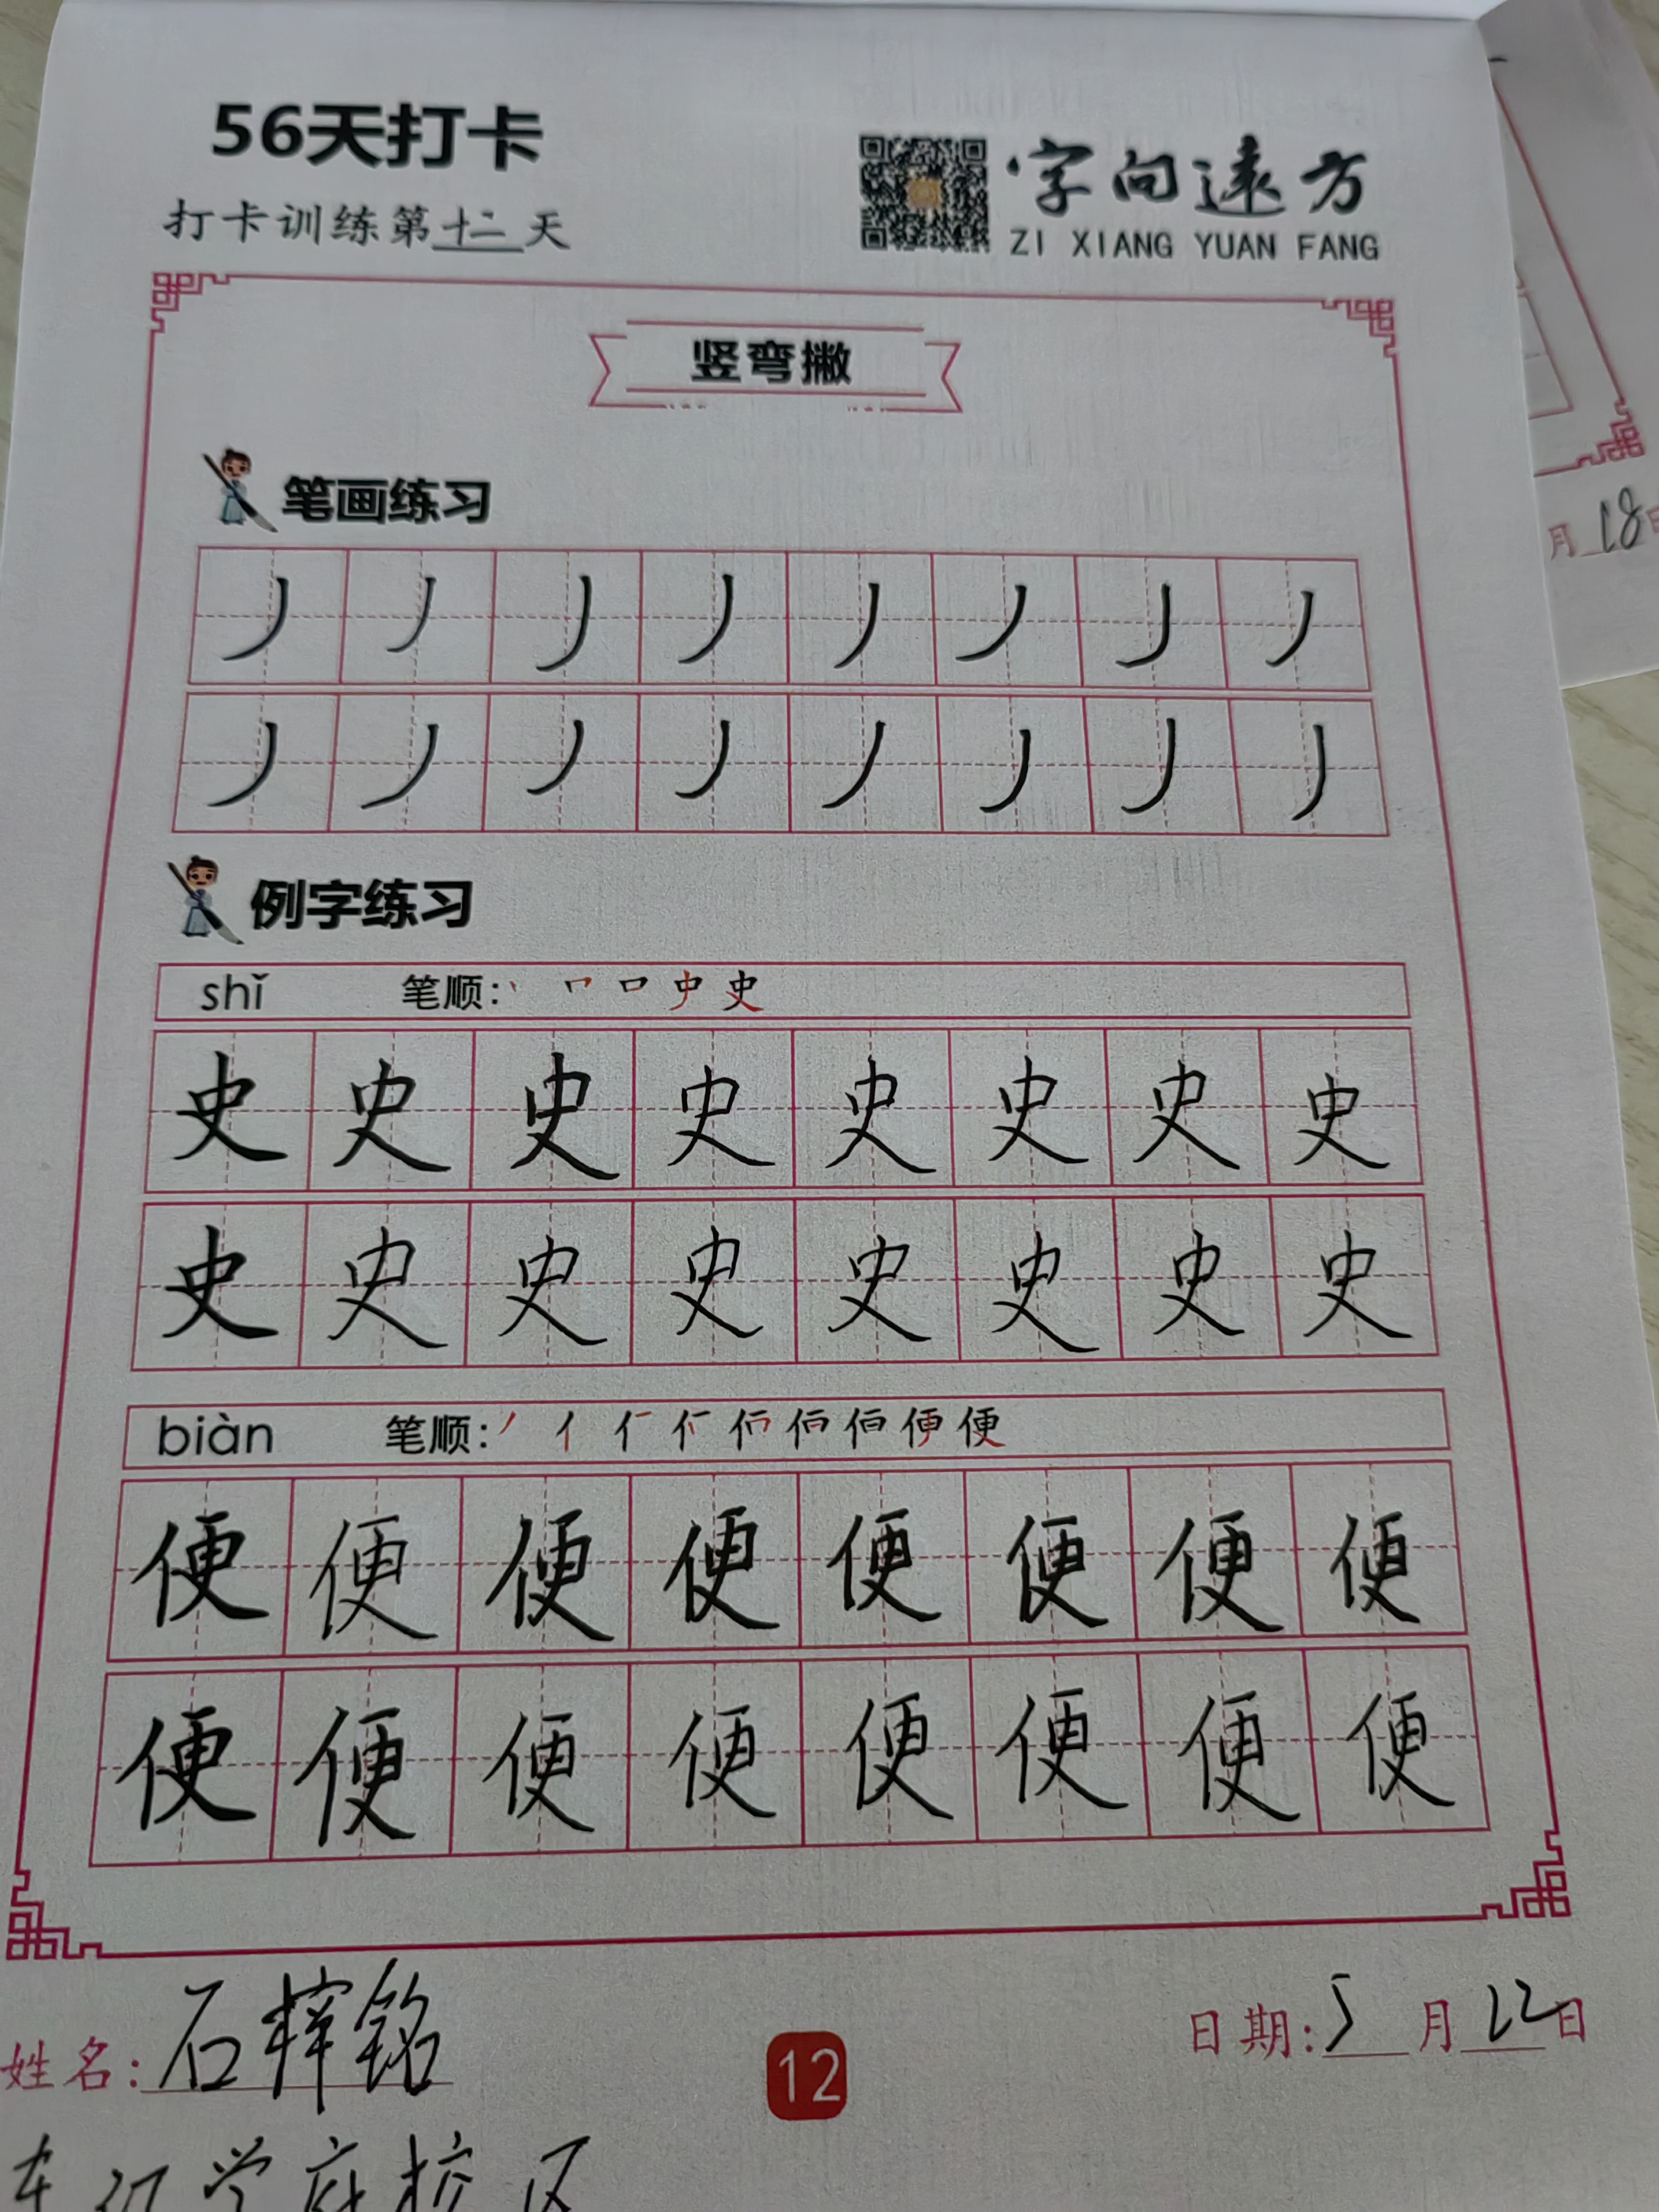 56天打卡
打卡训练第十二天
字向远方
ZI XIANG YUAN FANG
竖弯撇
笔画练习
丿丿丿丿丿丿丿丿
丿丿丿丿丿丿丿丿
例字练习
shǐ 笔顺: 丶 史
史史史史史史史史
史史史史史史史史
biàn 笔顺: 丿 亻 便
便便便便便便便便
便便便便便便便便
月18日
姓名: 石 铭
12
日期: 5月12日
学府校区